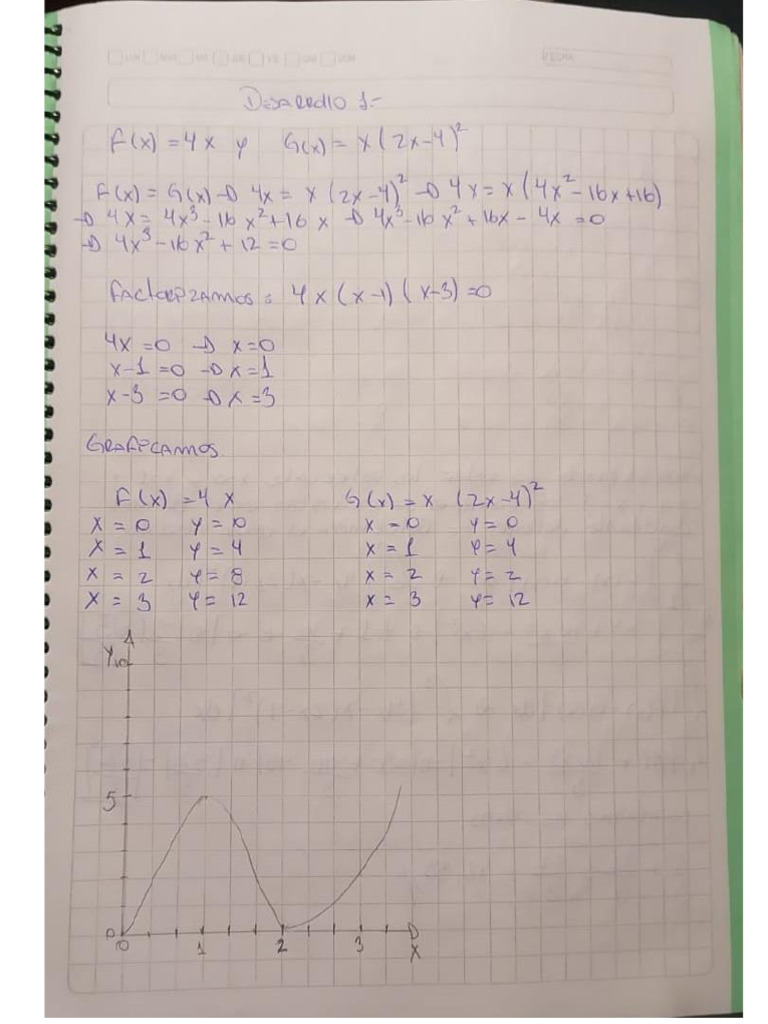 LUN MAR MIE JUE VIE SAB DOM FECHA
Desarrollo 1:-
F(x) = 4x y G(x) = x(2x-4)²
F(x) = G(x) → 4x = x(2x-4)² → 4x = x(4x²-16x+16)
→ 4x = 4x³-16x²+16x → 4x³-16x²+16x-4x=0
→ 4x³-16x²+12=0
Factorizamos: 4x(x-1)(x-3)=0
4x=0 → x=0
x-1=0 → x=1
x-3=0 → x=3
Graficamos
F(x) = 4x G(x) = x (2x-4)²
x = 0 y = 0 x = 0 y = 0
x = 1 y = 4 x = 1 y = 4
x = 2 y = 8 x = 2 y = 2
x = 3 y = 12 x = 3 y = 12
Y 10
5
0
0 1 2 3 X